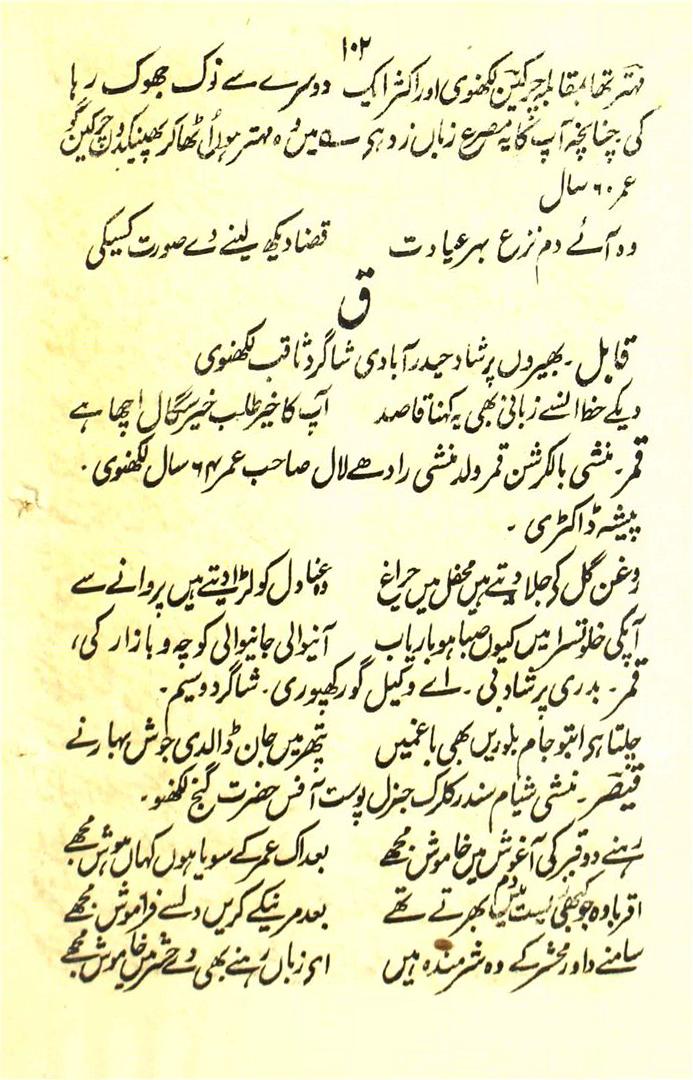 ۱۰۲
مہتر تھا بمقابلہ چرکین لکھنوی اور اکثر ایک دوسرے سے نوک جھوک رہا
کی چنانچہ آپ کا یہ مصرع زباں زد ہی ؎ میں وہ مہتر ہوں اُٹھا کر پھینکدوں چرکین کو
عمر ۶۰ سال
وہ آئے دم نزع بہر عیادت قضا دیکھ لینے دے صورت کسیکی
ق
قابل۔ بھیروں پرشاد حیدرآبادی شاگرد ثاقب لکھنوی
دیکے خط انسے زبانی بھی یہ کہنا قاصد آپ کا خیر طلب خیر سگال اچھا ہے
قمر۔ منشی بالکرشن قمر ولد منشی رادھے لال صاحب عمر ۶۴ سال لکھنوی۔
پیشہ ڈاکٹری۔
روغن گل کے جلا دیتے ہیں محفل میں چراغ وہ عنادل کو لڑا دیتے ہیں پروانے سے
آپکی خلوتسرا میں کیوں صبا ہو باریاب آنیوالی جانیوالی کوچہ و بازار کی،
قمر۔ بدری پرشاد بی۔ اے وکیل گورکھپوری۔ شاگرد وسیم۔
چلتا ہی ابتو جام بلوریں بھی باغمیں پتھر میں جان ڈالدی جوش بہار نے
قیصر۔ منشی شیام سندر کلرک جنرل پوسٹ آفس حضرت گنج لکھنؤ۔
رہنے دو قبر کی آغوش میں خاموش مجھے بعد اک عمر کے سویا ہوں کہاں ہوش مجھے
اقربا وہ جو کبھی زیست میں دم بھرتے تھے بعد مرنیکے کریں دلسے فراموش مجھے
سامنے داور محشر کے وہ شرمندہ ہیں ای زباں رہنے بھی دے حشر میں خاموش مجھے